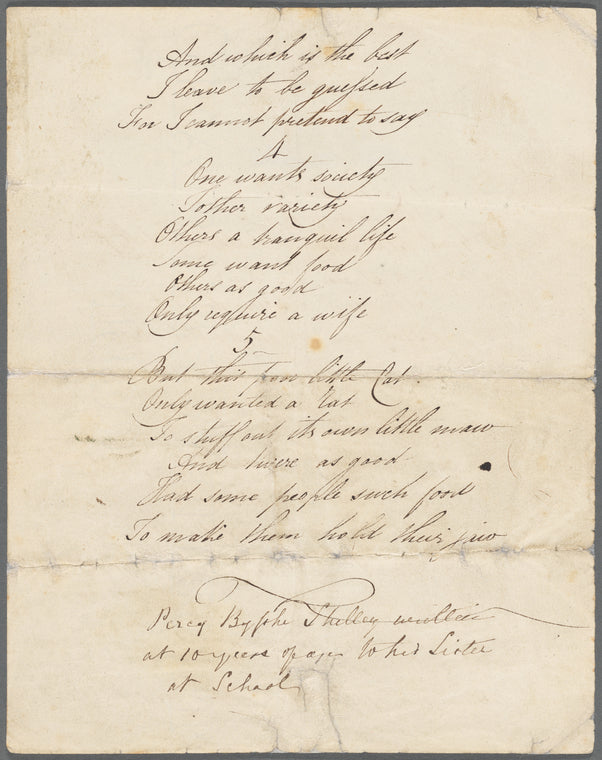 And which is the best
I leave to be guessed
For I cannot pretend to say
4
One wants society
T'other variety
Others a tranquil life
Some want food
Others as good
Only require a wife
5
But this poor little Cat
Only wanted a rat
To stuff out its own little maw
And twere as good
Had some people such food
To make them hold their jaw
Percy Bysshe Shelley written
at 10 years of age to his Sister
at School